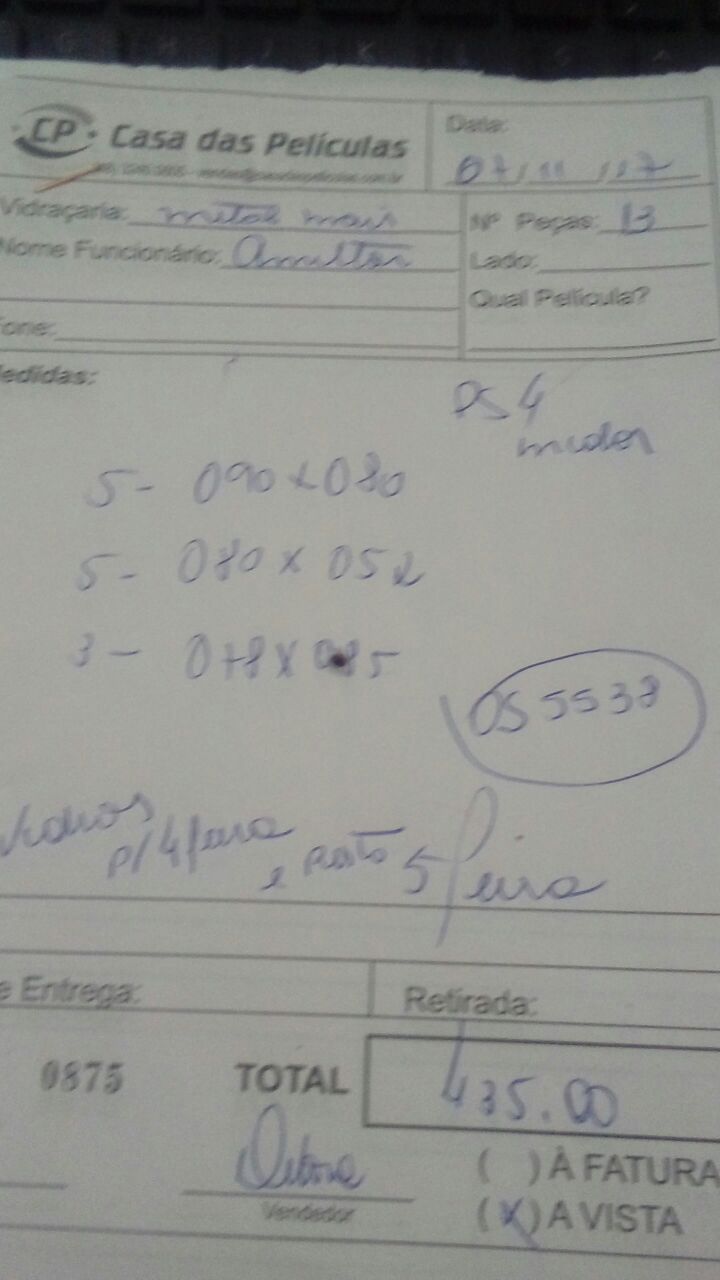 CP Casa das Películas
Data:
07/11/17
Vidraçaria: metax mais
Nº Peças: 13
Nome Funcionário: Amilton
Lado:
Qual Película?
Fone:
Medidas:
PS4
5 - 090 x 080
5 - 080 x 052
3 - 078 x 085
OS 5538
p/ 4 feira
e resto 5 feira
e Entrega:
Retirada:
0875
TOTAL
435.00
( ) À FATURA
Vendedor
(X) A VISTA